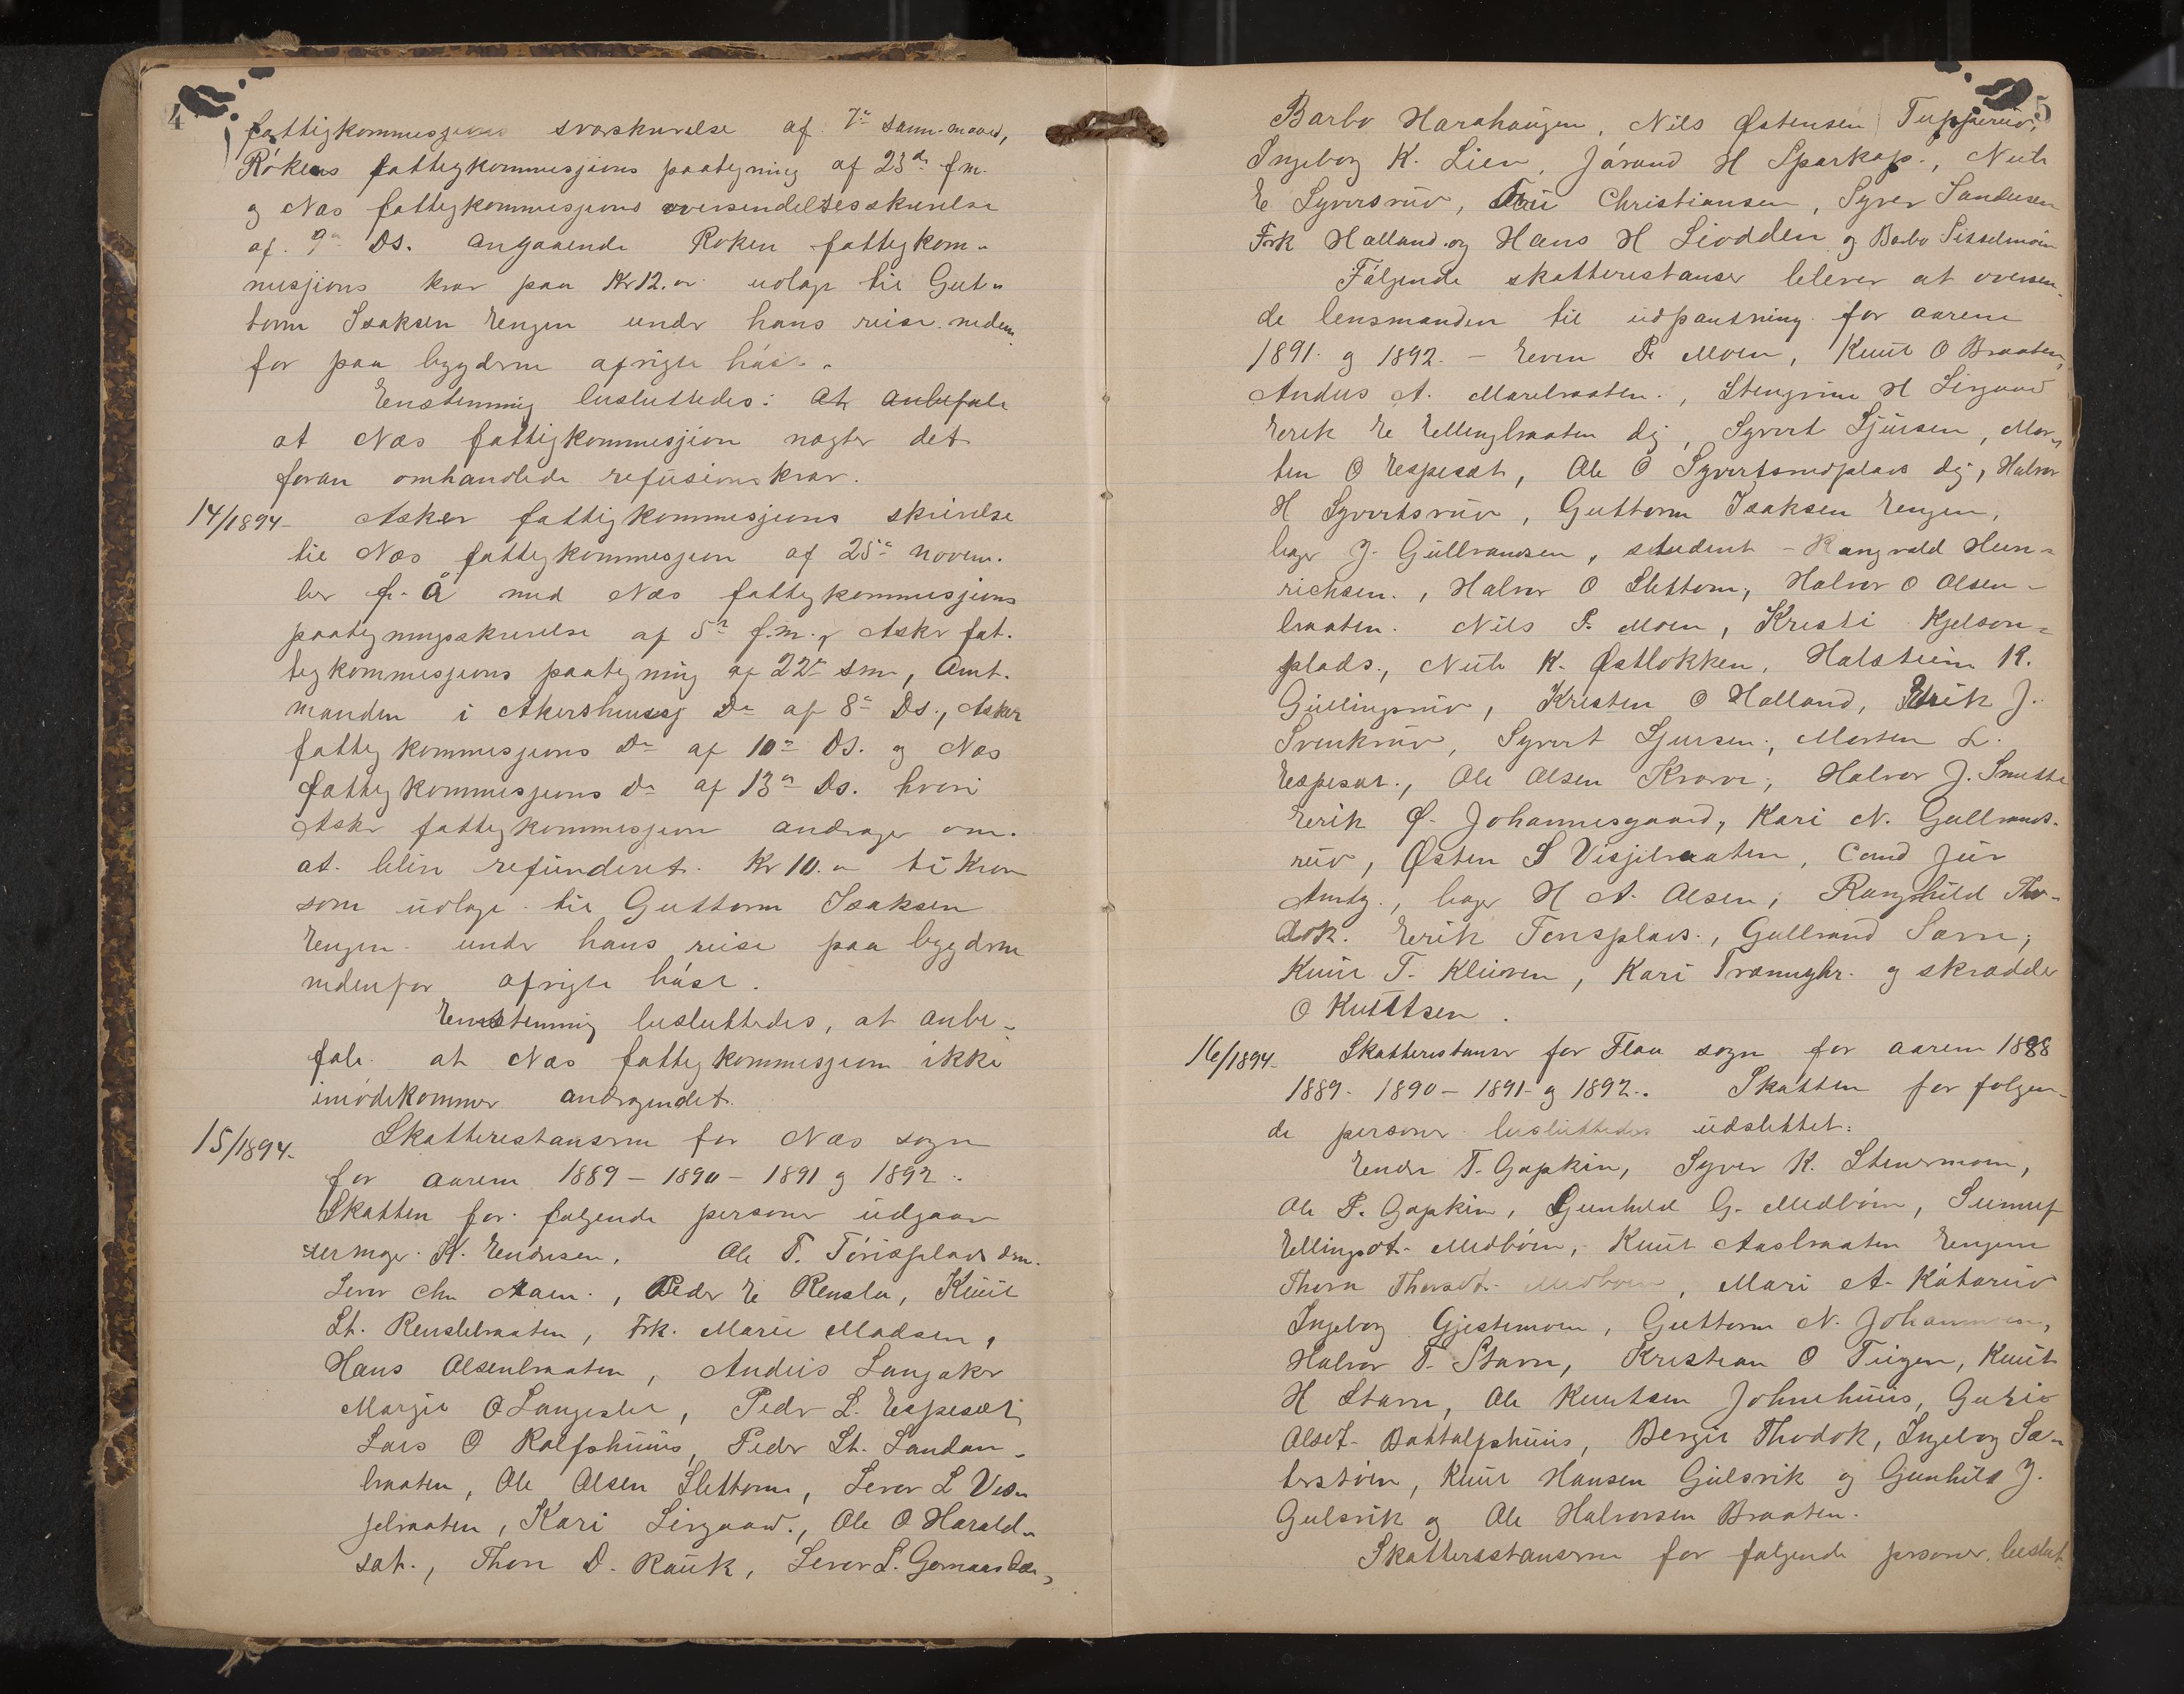 4
fattigkommisjons svarskrivelse af 7de samm. maaned,
Røkens fattigkommisjons paategning af 23de f.m.
og Næs fattigkommisjons oversendelsesskrivelse
af 9de Ds. angaaende Røken fattigkom-
misjons krav paa Kr 12.00 udlagt til Gut-
torm Isaksen Engen under hans reise neden
for paa bygderne afvigte høst.
Enstemmig besluttedes: At anbefale
at Næs fattigkommisjion nægter det
foran omhandlede refusionskrav.
14/1894 Asker fattigkommisjons skrivelse
til Næs fattigkommisjon af 25de novem-
ber f. å med Næs fattigkommisjons
paategningsskrivelse af 5te f.m., Asker fat-
tigkommisjons paategning af 22de sm, Amt-
manden i Akershus Do af 8de Ds., Asker
fattigkommisjons Do af 10de Ds. og Næs
fattigkommisjons Do af 13de Ds. hvori
Asker fattigkommisjon andrager om
at blive refunderet Kr 10.00 ti kroner
som udlagt til Guttorm Isaksen
Engen under hans reise paa bygderne
nedenfor afvigte høst.
Enstemmig besluttedes, at anbe-
fale at Næs fattigkommisjon ikke
imødekommer andragendet.
15/1894. Skatterestanserne for Næs sogn
for aarene 1889 – 1890 – 1891 og 1892.
Skatten for følgende personer udgaar
K. Endresen, Ole T. Tørisplads
Sever Moen, Peder E Rensla, Knut
St. Renslebraaten, Frk. Marie Madsen,
Hans Olsenbraaten, Andris Langaker
Margit O Langeslet, Peder L. Espeset,
Lars O Rolfshuus, Peder St. Sandan-
braaten, Ole Olsen Slettom, Sever L Vis-
jebraaten, Kari Lirgaard, Ole O Harald-
sæt., Thore D. Rauk, Sever S.
5
Barbo Harahaugen, Nils Østensen Tupperud,
Ingeborg K. Lien, Jørand H Sparkop, Nub
E Syversrud, Fru Christiansen, Syver Sandersen
Frk Halland og Hans H Liodden og Barbo Sisselmoen
Følgende skatterestanser blever at oversen-
de lensmanden til udpantning for aarene
1891 og 1892. – Even P. Moen, Knut O Braaten,
Andres A. Morebraaten, Stengrim H Lirgaard
Eerik E Ellingbraaten dy, Syvert Sjursen, Mor-
ten O Espeset, Ole O Syvertsrudplads dy, Halvor
H Syvertsrud, Guttorm Isaksen Engen,
bager J. Gulbrandsen, student Rangvald Hen-
richsen, Halvor O Slettom, Halvor O Olsen-
braaten. Nils P. Moen, Kristi Kjelson-
plads, Nub K. Østlokken, Halstein K.
Gullingsrud, Kristen O Halland, Erik J.
Svenkrud, Syvert Sjursen, Morten L.
Espeset, Ole Olsen Krover, Halvor J. Smette
Eerik Ø. Johannesgaard, Kari N. Gulbrands-
rud, Østen S Visjebraaten, Cand jur
Amby., bager H A. Olsen, Ranghild Tho-
dok. Eerik Tonsplads, Gulbrand Sorm,
Knut T. Kleiven, Kari Trommyhr og skrædder
O Knuttsen.
16/1894. Skatterestanser for Flaa sogn for aarene 1888
1889 – 1890 – 1891 og 1892. Skatten for følgen-
de personer besluttedes udslettet:
Endre T. Gapkin, Syver K. Stenersmoen,
Ole P. Gapkin, Gunhild G. Medbøen, Sunnif
Ellingsdt. Medbøen, Knut Aasbraaten Engene
Thora Thorsdt. Medbøen, Mari A. Kåtarud
Ingeborg Gjestemoen, Guttorm N. Johannesen,
Halvor T. Stavn, Kristian O Teigen, Knut
H Stavn, Ole Knutsen Johnehuus, Guri
Olsdt. Battalfshuus, Bergit Thodok, Ingeborg Sæ-
terstøen, Knut Hansen Gulsvik og Gunhild J.
Gulsvik og Ole Halvorsen Braaten.
Skatterestanserne for følgende personer beslut-